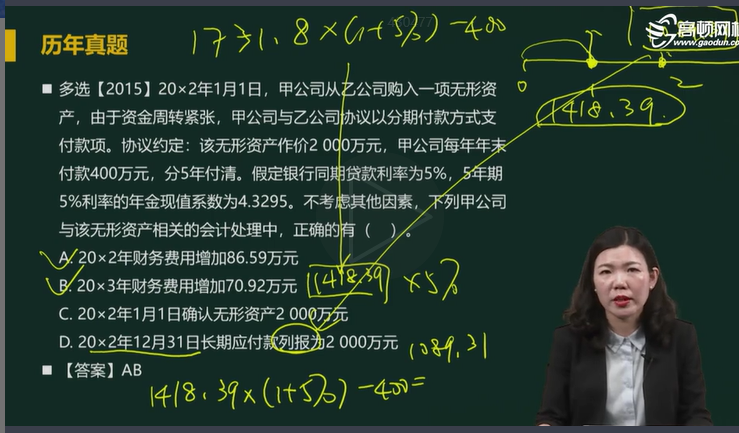 历年真题
1731.8×(1+5%)-400
高顿网校
www.gaodun.com
0
2
1418.39
■ 多选【2015】20×2年1月1日，甲公司从乙公司购入一项无形资
产，由于资金周转紧张，甲公司与乙公司协议以分期付款方式支
付款项。协议约定：该无形资产作价2 000万元，甲公司每年年末
付款400万元，分5年付清。假定银行同期贷款利率为5%，5年期
5%利率的年金现值系数为4.3295。不考虑其他因素，下列甲公司
与该无形资产相关的会计处理中，正确的有（ ）。
A. 20×2年财务费用增加86.59万元
B. 20×3年财务费用增加70.92万元
1418.39 ×5%
C. 20×2年1月1日确认无形资产2 000万元
D. 20×2年12月31日长期应付款列报为2 000万元
1089.31
■ 【答案】AB
1418.39×(1+5%)-400=